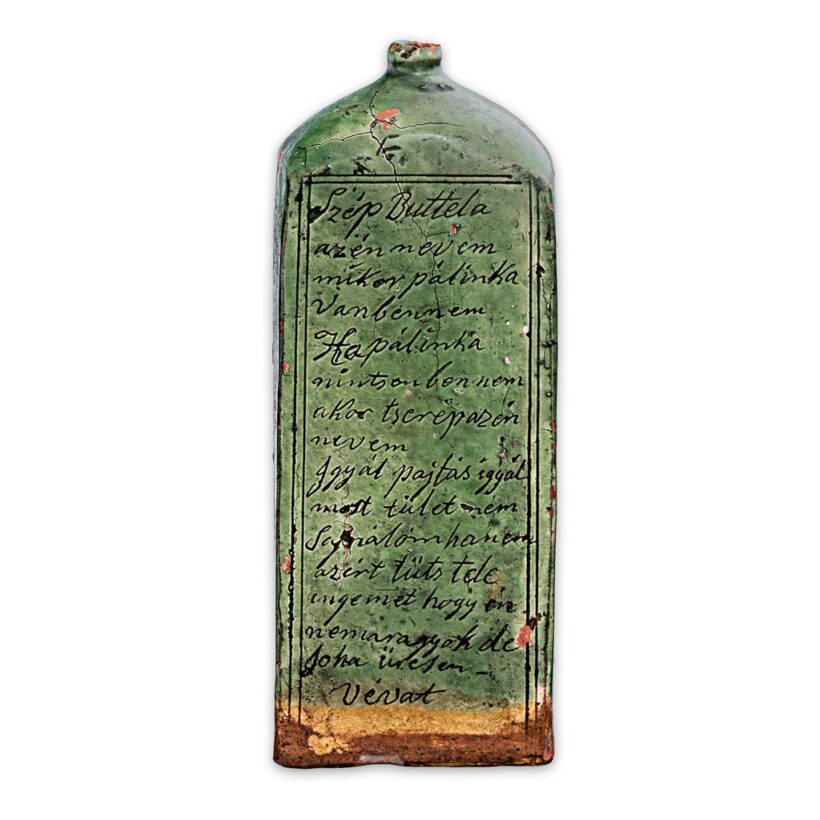 Szép Buttela
azén nevem
mikor pálinka
Van bennem
Ha pálinka
nintsen bennem
akor tserép azén
nevem
Igyál pajtás igyál
most tület nem
Sajnálom hanem
azért tüts tele
ingemet hogy én
nemaragyok de
soha üresen
Vévat